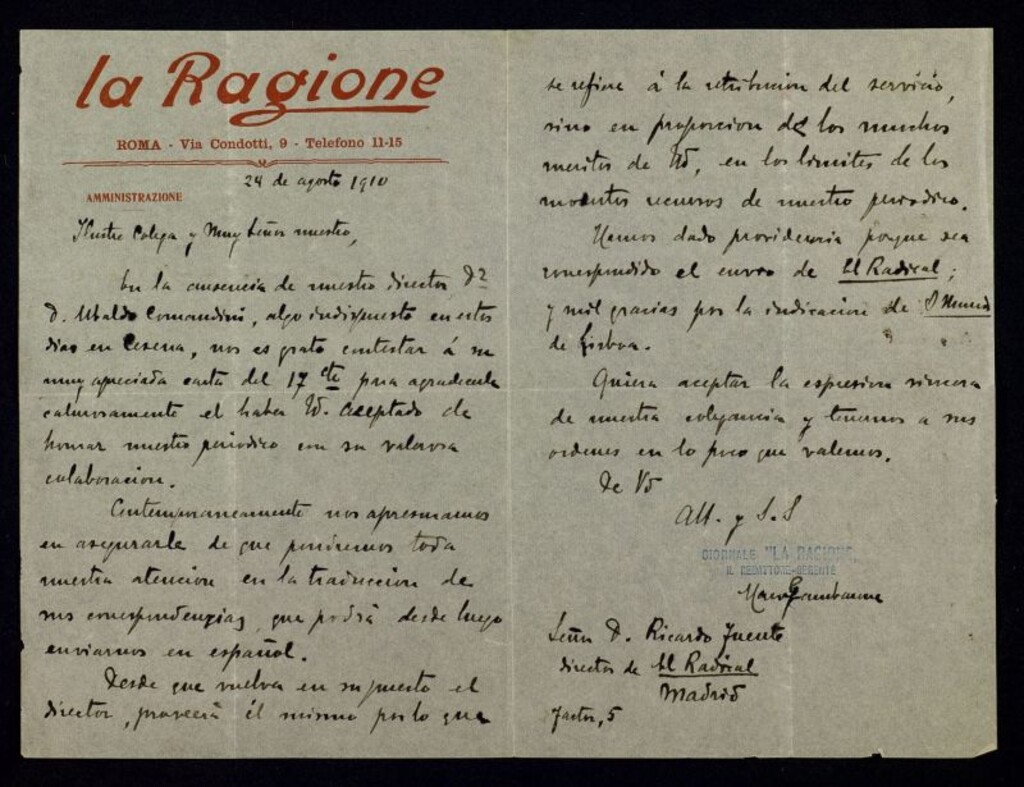 la Ragione
ROMA - Via Condotti, 9 - Telefono 11-15
24 de agosto 1910
AMMINISTRAZIONE
Ilustre Colega y Muy Señor nuestro,
En la ausencia de nuestro director
D. Ubaldo Comandini, algo indispuesto en estos
dias en Cesena, nos es grato contestar á su
muy apreciada carta del 17 cte para agradecerle
calurosamente el haber Vd. aceptado de
honrar nuestro periodico con su valorosa
colaboracion.
Contemporaneamente nos apresuramos
en asegurarle de que pondremos toda
nuestra atencion en la traduccion de
sus correspondencias, que podrá desde luego
enviarnos en español.
Desde que vuelva en su puesto el
director, proveerá él mismo por lo que
se refiere á la retribucion del servicio,
sino en proporcion de los muchos
meritos de Vd, en los limites de los
modestos recursos de nuestro periodico.
Hemos dado providencia porque sea
correspondido el envio de El Radical;
y mil gracias por la indicacion de O Mundo
de Lisboa.
Quiera aceptar la espresion sincera
de nuestra colegancia y tenernos a sus
ordenes en lo poco que valemos.
De Vd
Att. y S.S
GIORNALE "LA RAGIONE"
IL REDATTORE-GERENTE
Señor D. Ricardo Fuente
director de El Radical
Madrid
Factor, 5